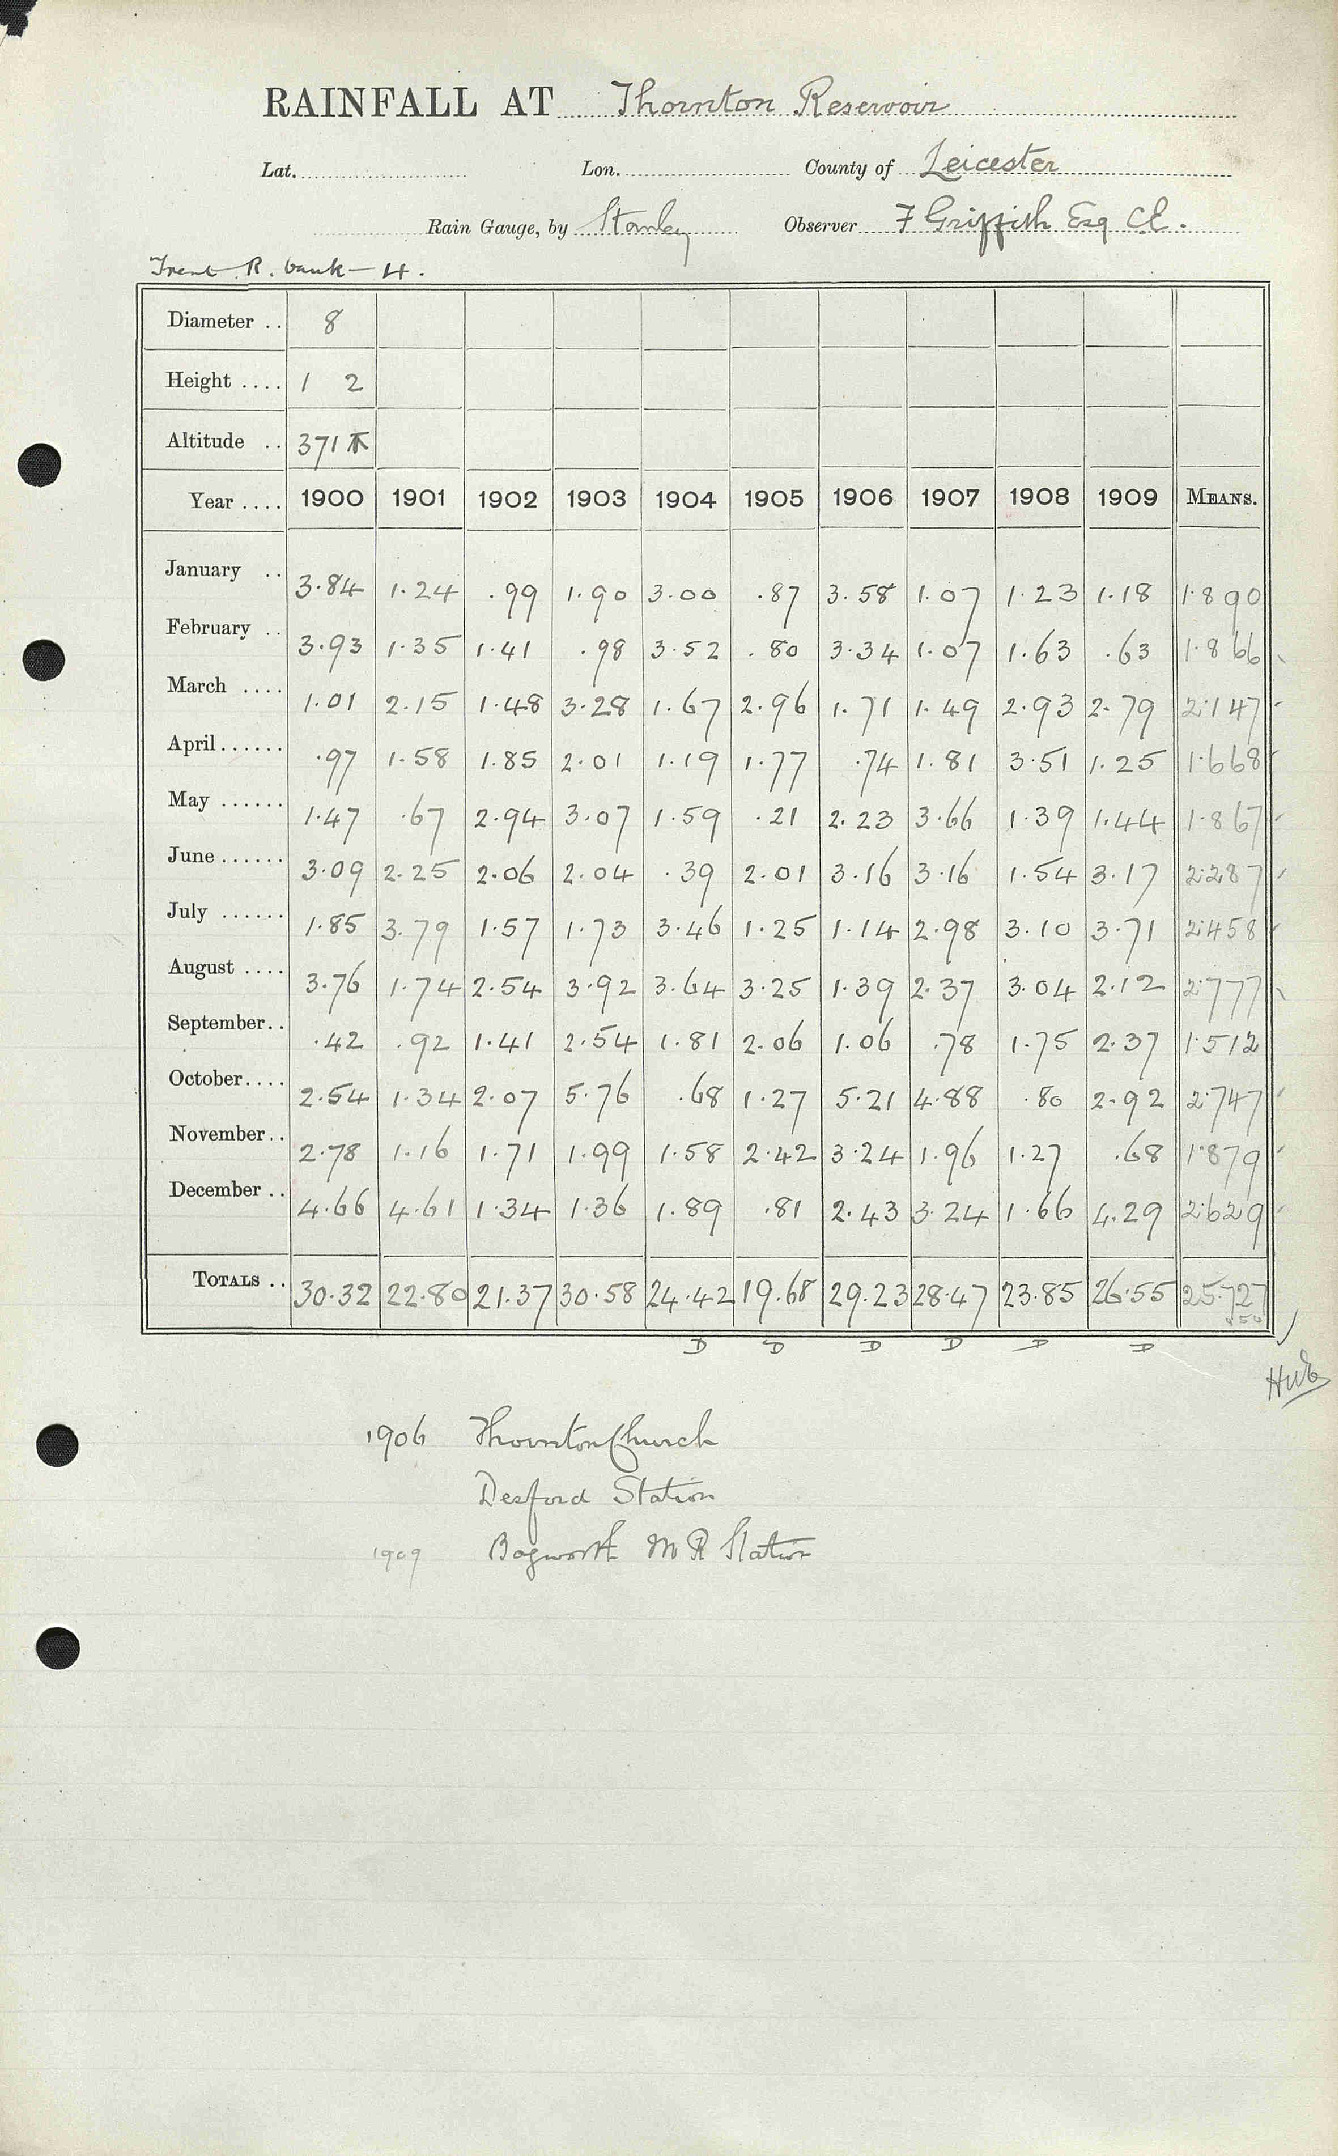 RAINFALL AT Thornton Reservoir
Lat. Lon. County of Leicester
Rain Gauge, by Stanley Observer F Griffith Esq C.E.
Trent R. bank - 4.
Diameter .. 8
Height .... 1 2
Altitude .. 371
Year .... 1900 1901 1902 1903 1904 1905 1906 1907 1908 1909 MEANS.
January .. 3.84 1.24 .99 1.90 3.00 .87 3.58 1.07 1.23 1.18 1.890
February .. 3.93 1.35 1.41 .98 3.52 .80 3.34 1.07 1.63 .63 1.866
March .... 1.01 2.15 1.48 3.28 1.67 2.96 1.71 1.49 2.93 2.79 2.147
April ...... .97 1.58 1.85 2.01 1.19 1.77 .74 1.81 3.51 1.25 1.668
May ...... 1.47 .67 2.94 3.07 1.59 .21 2.23 3.66 1.39 1.44 1.867
June ...... 3.09 2.25 2.06 2.04 .39 2.01 3.16 3.16 1.54 3.17 2.287
July ...... 1.85 3.79 1.57 1.73 3.46 1.25 1.14 2.98 3.10 3.71 2.458
August .... 3.76 1.74 2.54 3.92 3.64 3.25 1.39 2.37 3.04 2.12 2.777
September .. .42 .92 1.41 2.54 1.81 2.06 1.06 .78 1.75 2.37 1.512
October .... 2.54 1.34 2.07 5.76 .68 1.27 5.21 4.88 .80 2.92 2.747
November .. 2.78 1.16 1.71 1.99 1.58 2.42 3.24 1.96 1.27 .68 1.879
December .. 4.66 4.61 1.34 1.36 1.89 .81 2.43 3.24 1.66 4.29 2.629
TOTALS .. 30.32 22.80 21.37 30.58 24.42 19.68 29.23 28.47 23.85 26.55 25.727
D D D D D D
1906 Thornton Church
Desford Station
1909 Bagworth M R Station